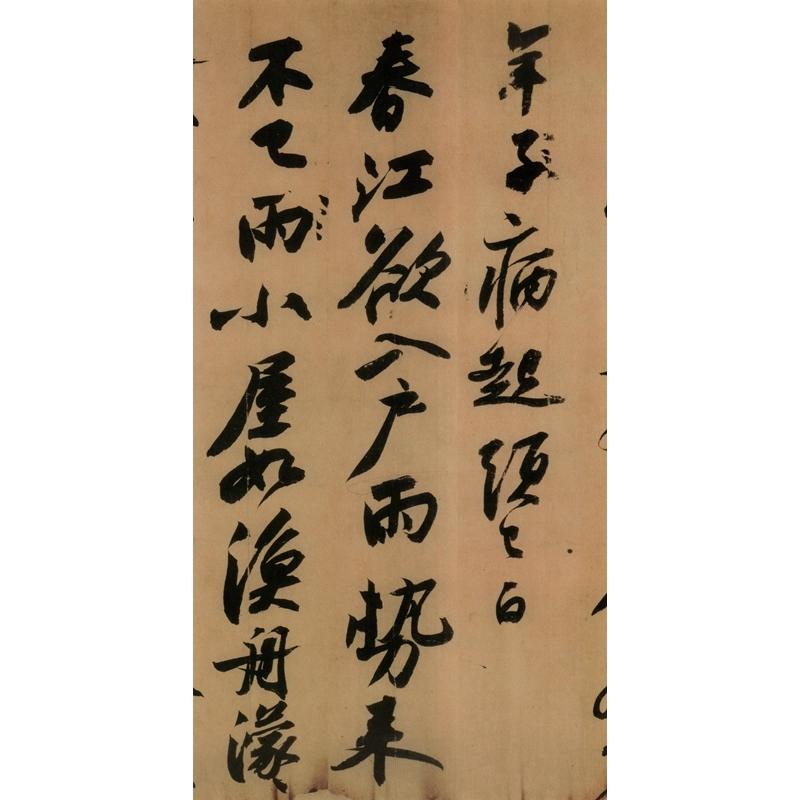 年子病起須已白
春江欲入戶雨勢来
不已雨小屋如漁舟濛